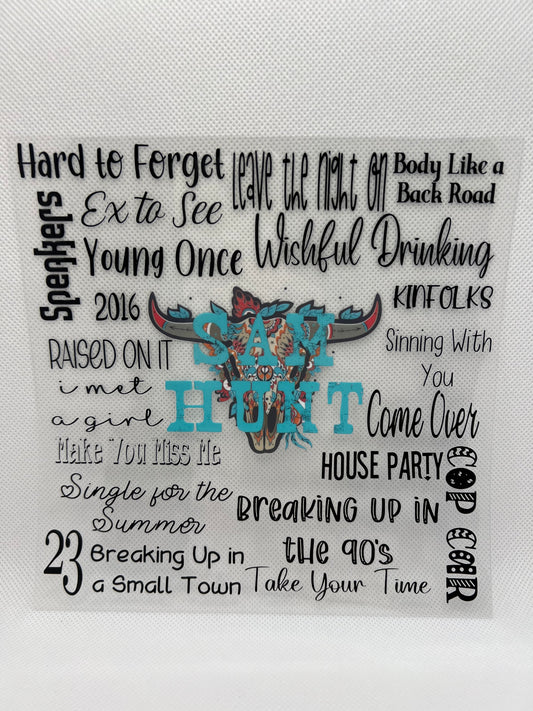 Hard to Forget
Leave the night on
Body Like a
Back Road
Speakers
Ex to See
Young Once
Wishful Drinking
2016
KINFOLKS
SAM
HUNT
RAISED ON IT
Sinning With
You
i met
a girl
Come Over
Make You Miss Me
HOUSE PARTY
COP CAR
Single for the
Summer
Breaking up in
the 90's
23
Breaking Up in
a Small Town
Take Your Time